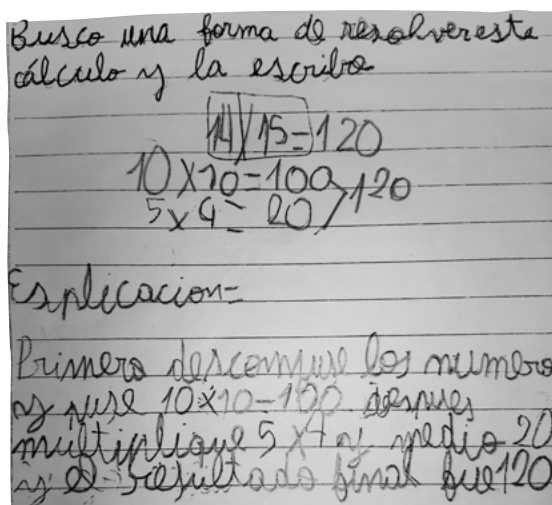 Busco una forma de resolver este
cálculo y la escribo
14 x 15 = 120
10 x 10 = 100
5 x 4 = 20 120
Esplicacion =
Primero descompuse los numero
y puse 10 x 10 = 100 despues
multiplique 5 x 4 y me dio 20
y el resultado final fue 120